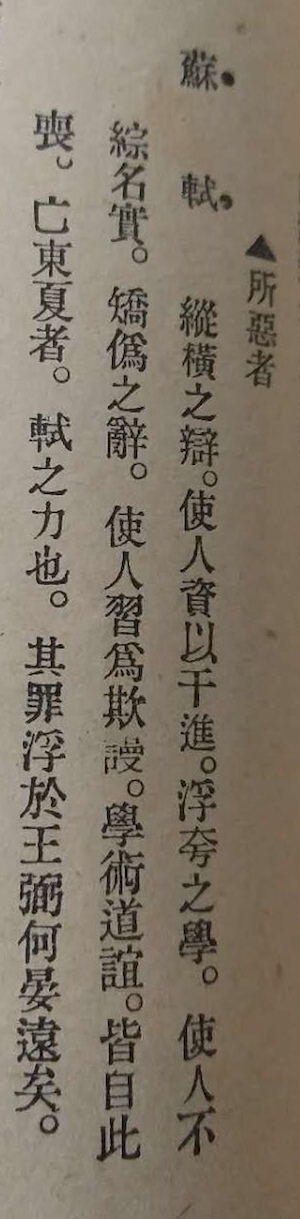 ▲所惡者
蘇軾 縱橫之辯。使人資以干進。浮夸之學。使人不
綜名實。矯僞之辭。使人習爲欺謾。學術道誼。皆自此
喪。亡東夏者。軾之力也。其罪浮於王弼何晏遠矣。